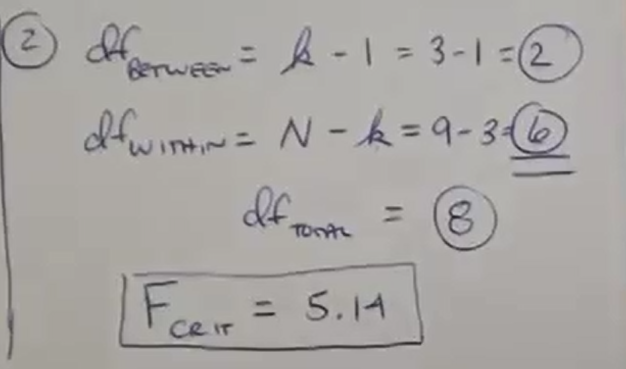 ② df BETWEEN = k - 1 = 3 - 1 = 2
df WITHIN = N - k = 9 - 3 = 6
df TOTAL = 8
F CRIT = 5.14